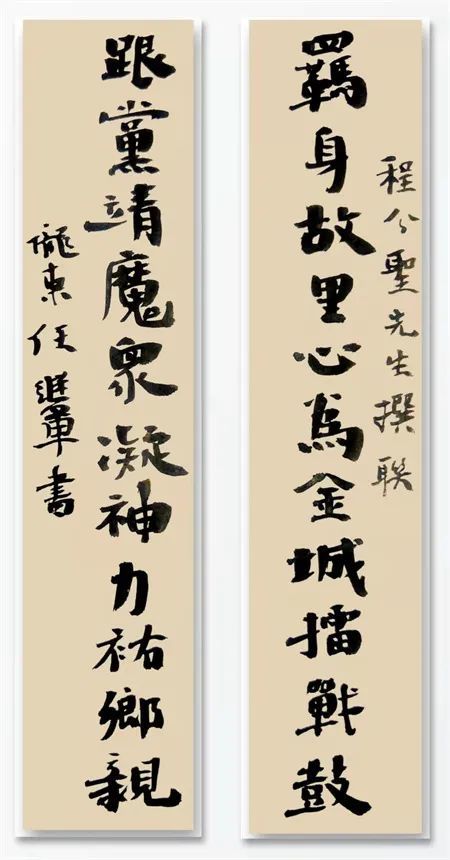 羈身故里心為金城擂戰鼓
程聖先生撰联
跟黨靖魔眾凝神力祐鄉親
隴東任書